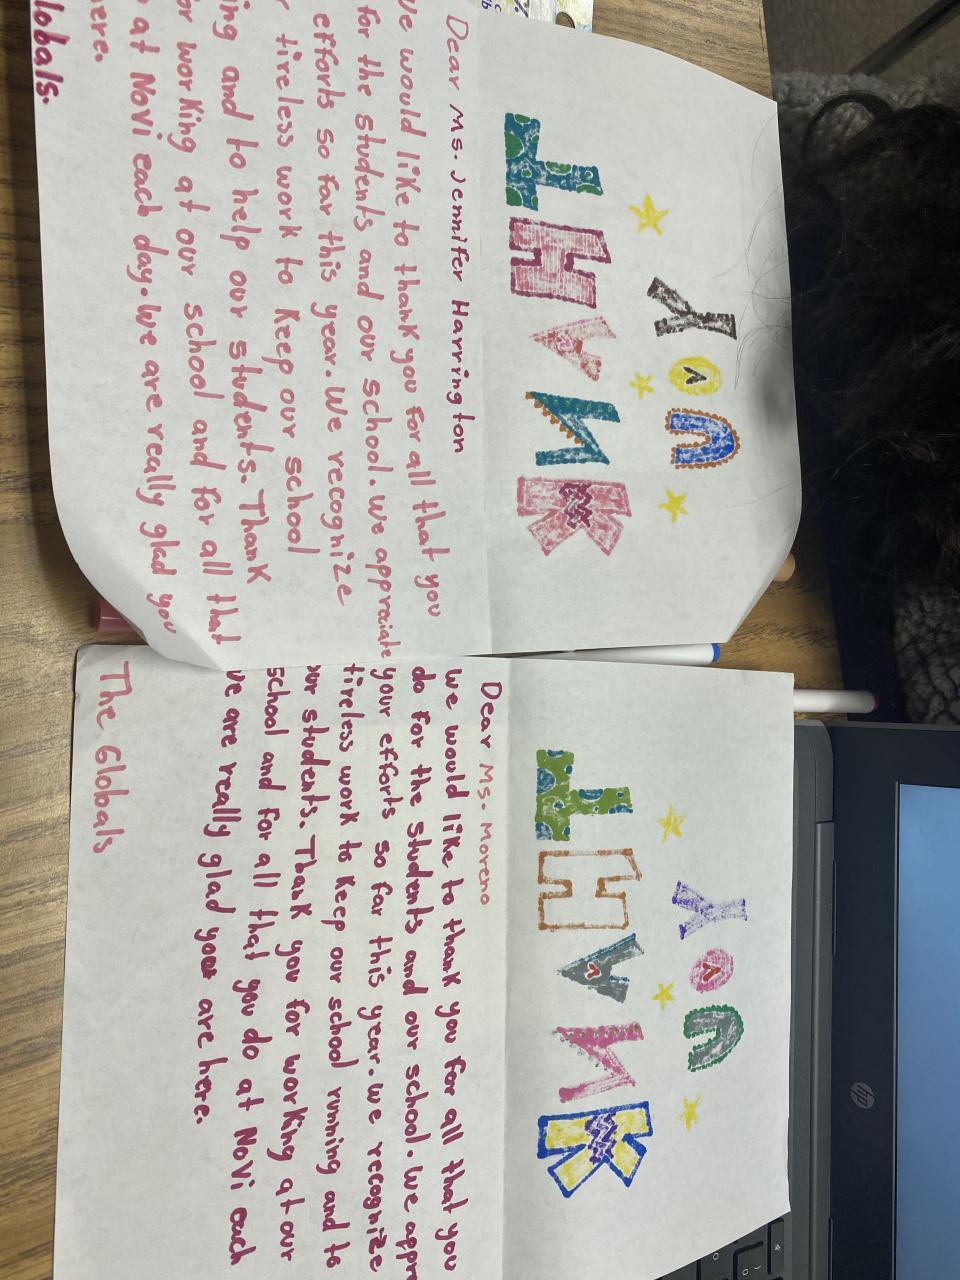 THANK
YOU
Dear Ms. Jennifer Harrington
We would like to thank you for all that you
for the students and our school. We appreciate
efforts so far this year. We recognize
tireless work to keep our school
ing and to help our students. Thank
or working at our school and for all that
at Novi each day. We are really glad you
here.
lobals.
THANK
YOU
Dear Ms. Moreno
We would like to thank you for all that you
do for the students and our school. We appre
your efforts so far this year. We recognize
tireless work to keep our school running and to
our students. Thank you for working at our
school and for all that you do at Novi each
we are really glad you are here.
The Globals
hp